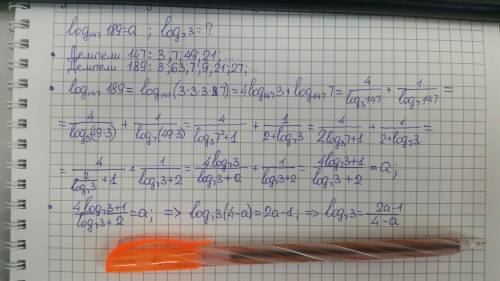 log₁₄₇ 189 = a ; log₇ 3 = ?
• Делители 147: 3; 7; 49; 21;
Делители 189: 3; 63; 7; 9; 21; 27;
• log₁₄₇ 189 = log₁₄₇(3·3·3·7) = 4log₁₄₇ 3 + log₁₄₇ 7 = 4/log₃ 147 + 1/log₇ 147 =
= 4/log₃(49·3) + 1/log₇(49·3) = 4/log₃ 7² + 1 + 1/2 + log₇ 3 = 4/2log₃ 7 + 1 + 1/2 + log₇ 3 =
= 4/2/log₇ 3 + 1 + 1/log₇ 3 + 2 = 4log₇ 3/log₇ 3 + 2 + 1/log₇ 3 + 2 = 4log₇ 3 + 1/log₇ 3 + 2 = a ;
• 4log₇ 3 + 1/log₇ 3 + 2 = a ; => log₇ 3(4-a) = 2a-1 ; => log₇ 3 = 2a-1/4-a